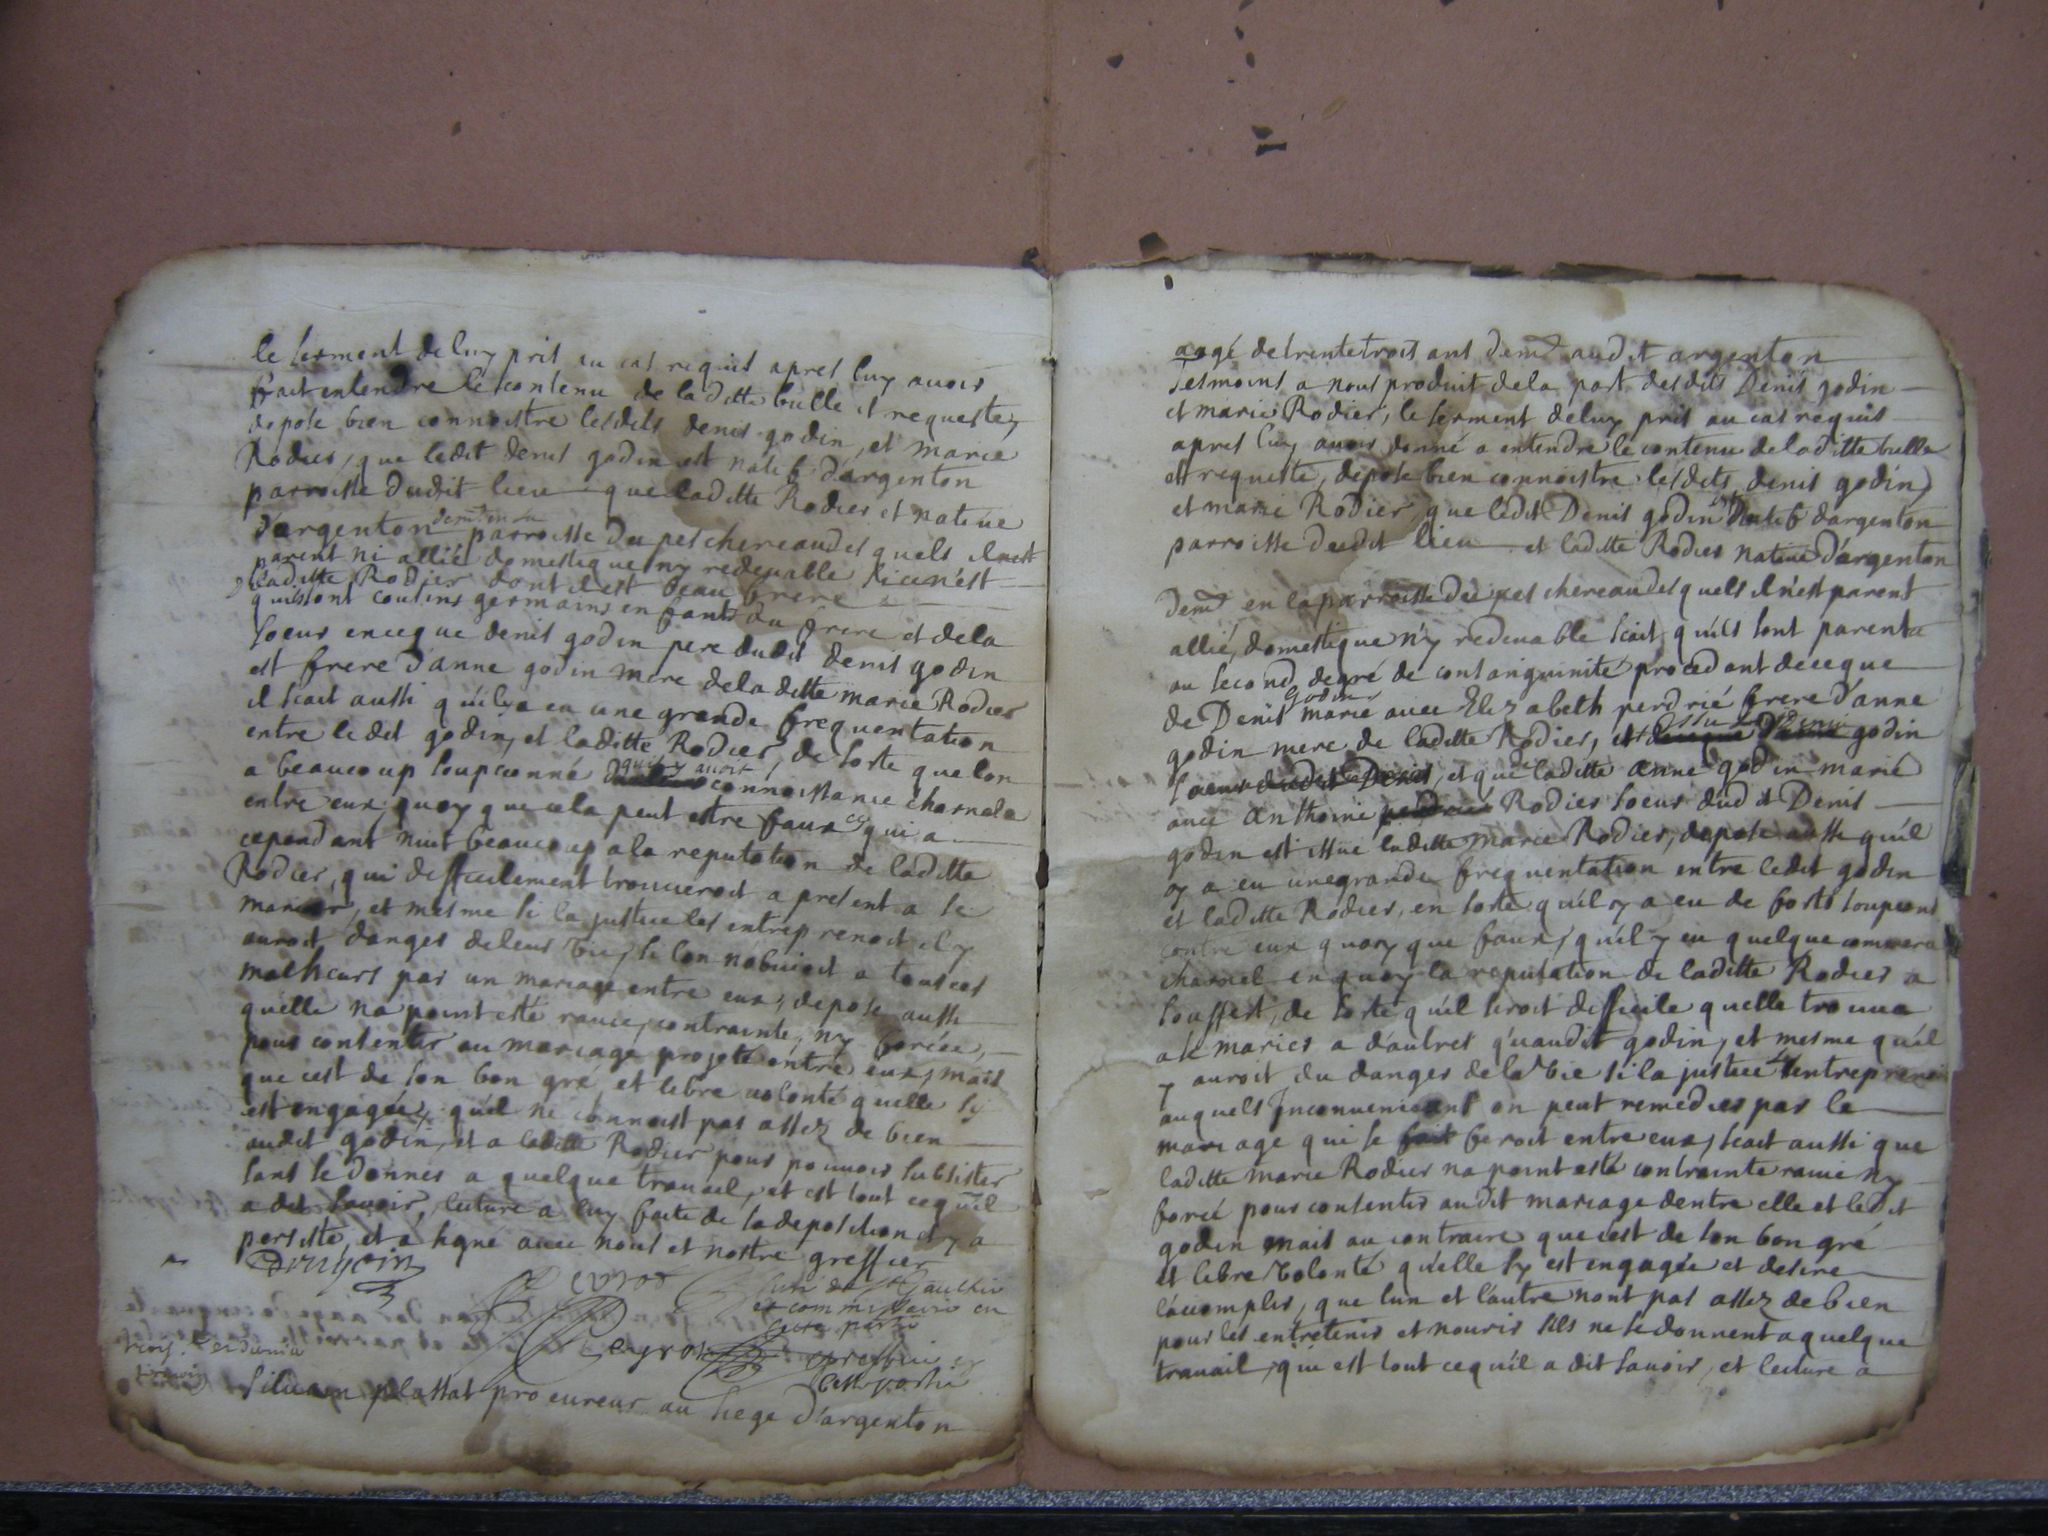 le serment de luy pris au cas requis apres luy avoir
fait entendre le contenu de laditte bulle et requeste,
depose bien connoistre lesdits denis godin, et marie
Rodier, que ledit denis godin est natif d'argenton
parroisse dudit lieu que laditte Rodier est native
d'argenton demt en la parroisse du peschereau desquels il n'est
parent ni allié domestique ny redevable si ce n'est
de laditte Rodier dont il est beau frere
quils sont cousins germains enfants du frere et de la
soeur en ce que denis godin pere dudit denis godin
est frere d'anne godin mere de laditte marie Rodier
il scait aussi qu'il y a eu une grande frequentation
entre ledit godin, et laditte Rodier, de sorte que lon
a beaucoup soupconné quil y avoit connoissance charnele
entre eux, quoy que cela peut estre faux ce qui a
cependant nuit beaucoup a la reputation de laditte
Rodier, qui difficilement trouveroit a present a se
marier, et mesme si la justice les entreprenoit il y
auroit danger de leur vie, si lon n'obvioit a tous ces
malheurs par un mariage entre eux, depose aussi
quelle na point esté ravie, contrainte, ny forcée,
pour consentir au mariage projeté entre eux, mais
que cest de son bon gré et libre volonté quelle sy
est engagée, quil ne connoist pas assez de bien
audit godin, et a laditte Rodier pour pouvoir subsister
sans se donner a quelque travail, et est tout ce qu'il
a dit savoir, lecture a luy faite de sa deposition dy a
persisté, et a signé avec nous et nostre greffier
Peyrot
curé de St Gaultier
et commissaire en
cette partie
Peyrot greffier
en cette partie
Silvain plassat procureur au siege d'argenton
aagé de trente trois ans demt audit argenton
tesmoins a nous produit de la part desdits Denis godin
et marie Rodier, le serment de luy pris au cas requis
apres luy avoir donné a entendre le contenu de laditte bulle
et requeste, depose bien connoistre lesdits denis godin,
et marie Rodier, que ledit Denis godin est natif dargenton
parroisse dudit lieu et laditte Rodier native d'argenton
demt en la parroisse du peschereau desquels il n'est parent
allié, domestique n'y redevable scait qu'ils sont parents
au second degré de consanguinité procedant de ce que
de Denis godin marié avec Elizabeth perdrié frere d'anne
godin mere de laditte Rodier, est issu denis godin
soeur dudit Denis, et que de laditte anne godin marié
avec anthoine Rodier soeur dudit Denis
godin est issue laditte marie Rodier, depose aussi qu'il
y a eu une grande frequentation entre ledit godin
et laditte Rodier, en sorte qu'il y a eu de forts soupcons
contre eux quoy que faux, qu'il y eu quelque commerce
charnel en quoy la reputation de laditte Rodier a
souffert, de sorte qu'il seroit difficile quelle trouva
a se marier a d'autres qu'audit godin, et mesme qu'il
y auroit du danger de la vie si la justice l'entreprenoit
auquels Inconveniens on peut remedier par le
mariage qui se feroit entre eux, scait aussi que
laditte marie Rodier na point esté contrainte ravie ny
forcé pour consentir audit mariage dentre elle et ledit
godin mais au contraire que c'est de son bon gré
et libre volonté qu'elle sy est engagée et desire
l'accomplir, que lun et l'autre nont pas assez de bien
pour les entretenir et nourir s'ils ne se donnent a quelque
travail, qui est tout ce qu'il a dit savoir, et lecture a